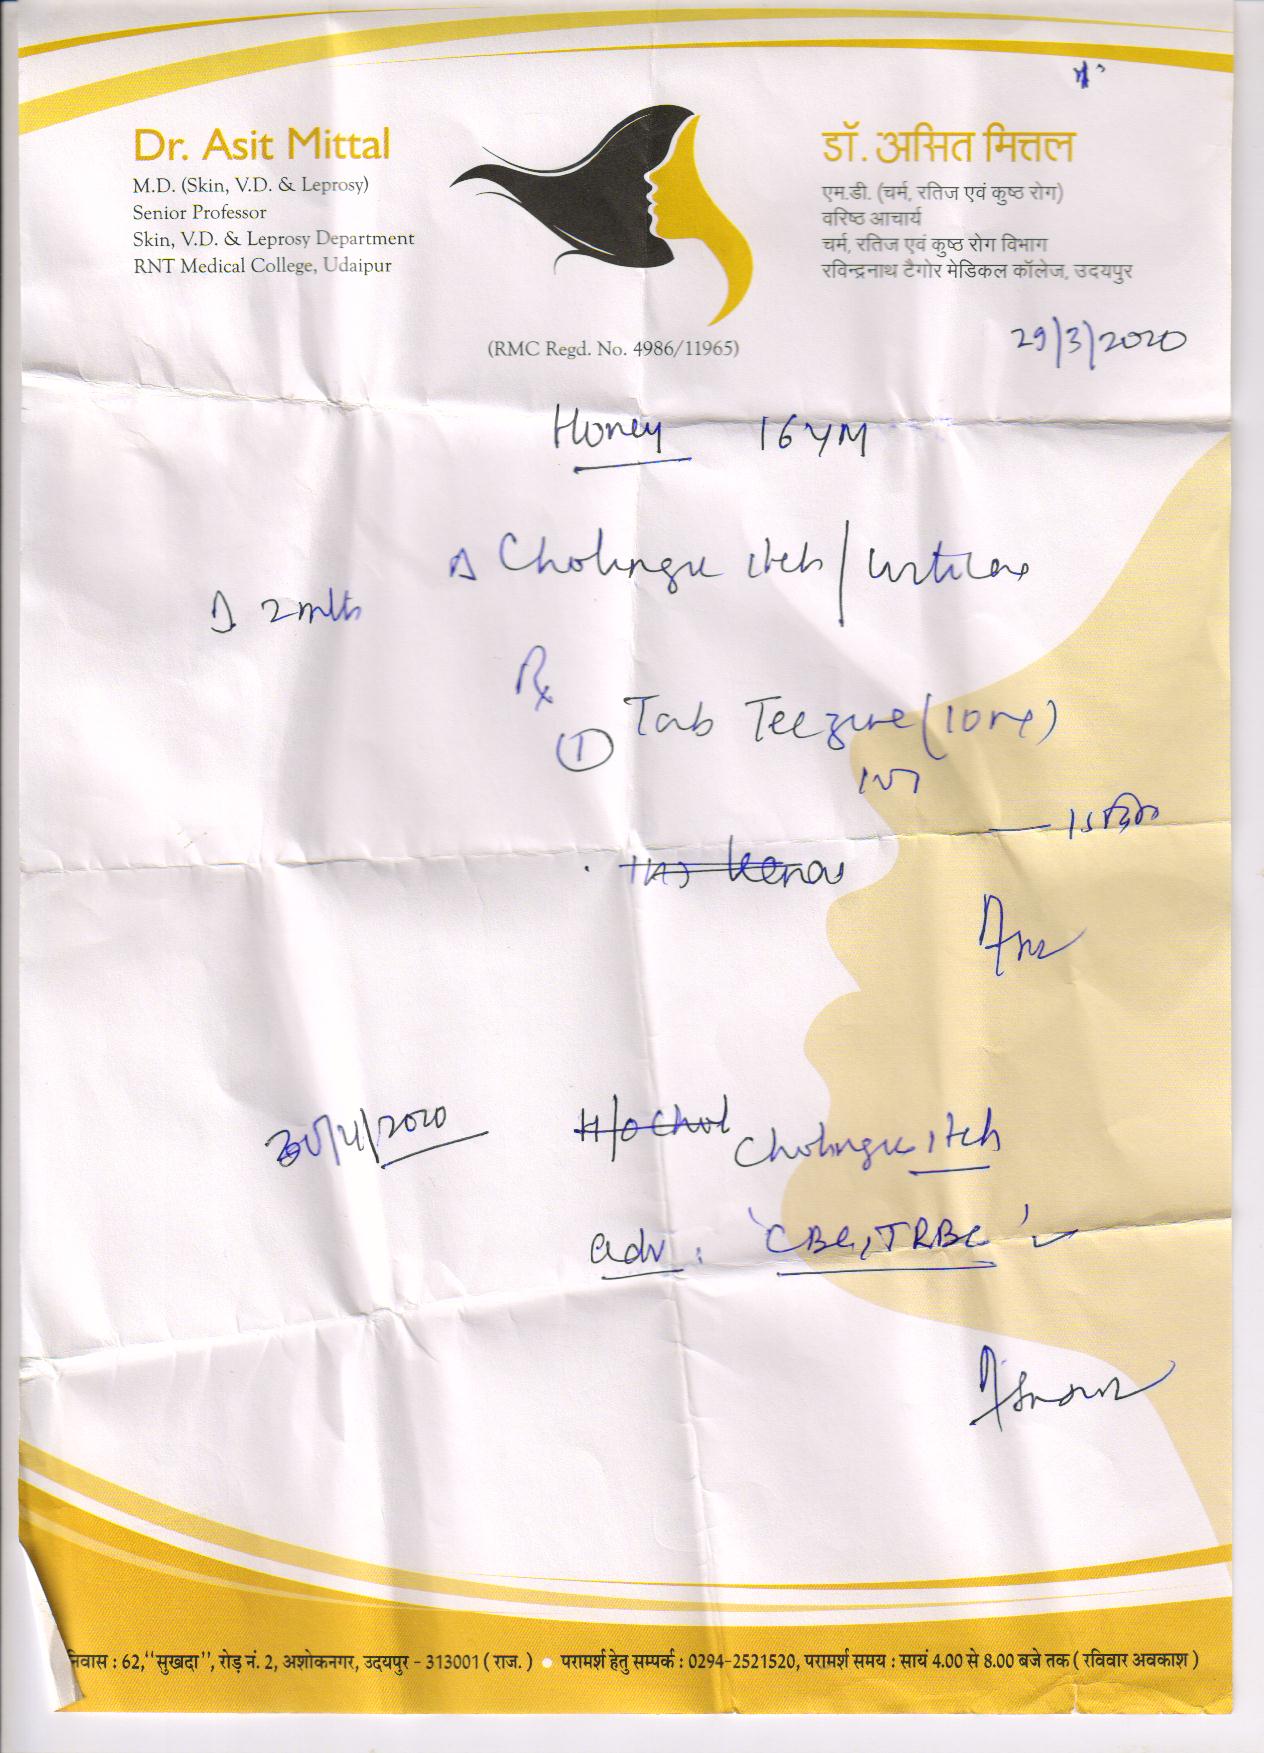 Dr. Asit Mittal
M.D. (Skin, V.D. & Leprosy)
Senior Professor
Skin, V.D. & Leprosy Department
RNT Medical College, Udaipur
डॉ. असित मित्तल
एम.डी. (चर्म, रतिज एवं कुष्ठ रोग)
वरिष्ठ आचार्य
चर्म, रतिज एवं कुष्ठ रोग विभाग
रविन्द्रनाथ टैगोर मेडिकल कॉलेज, उदयपुर
(RMC Regd. No. 4986/11965)
29/3/2020
Honey 16 YM
Δ Cholingic itch / urticaria
2 mths
Rx
① Tab Teczine (10 mg)
— 15 दिन
30/4/2020 H/o Chol Cholingic itch
adv: 'CBC, TRBC'
निवास : 62,"सुखदा", रोड़ नं. 2, अशोकनगर, उदयपुर - 313001 ( राज. ) • परामर्श हेतु सम्पर्क : 0294-2521520, परामर्श समय : सायं 4.00 से 8.00 बजे तक ( रविवार अवकाश )